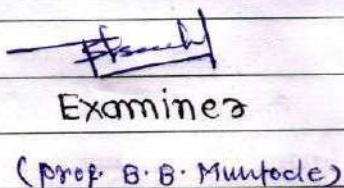 Examiner
(prof. B. B. Muntode)